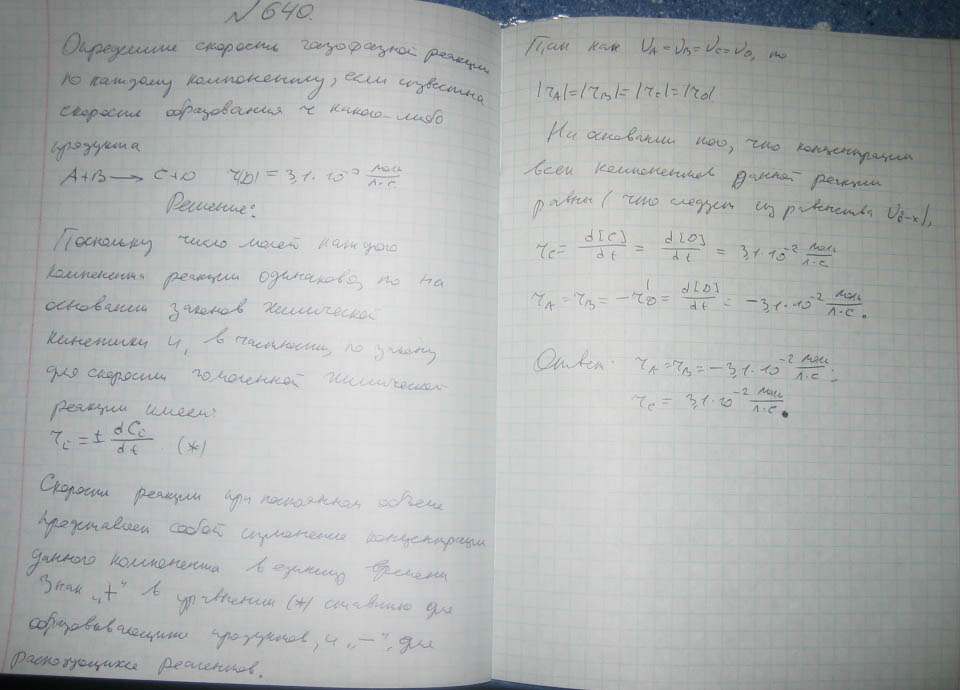 № 640.
Определите скорость газофазной реакции
по каждому компоненту, если известна
скорость образования r какого-либо
продукта
A+B → C+D r(D) = 3,1·10⁻² моль/л·с
Решение:
Поскольку число молей каждого
компонента реакции одинаково, то на
основании законов химической
кинетики и, в частности, по закону
для скорости гомогенной химической
реакции имеем:
r_i = ± dC_i/dt (*)
Скорость реакции при постоянном объеме
представляет собой изменение концентрации
данного компонента в единицу времени
Знак „+“ в уравнении (*) ставлю для
образовывающихся продуктов, и „−“, для
расходующихся реагентов.
Так как ν_A = ν_B = ν_C = ν_D, то
|r_A| = |r_B| = |r_C| = |r_D|
На основании того, что концентрации
всех компонентов данной реакции
равны (что следует из равенства
r_C = d[C]/dt = d[D]/dt = 3,1·10⁻² моль/л·с
r_A = r_B = −r_D = d[D]/dt = −3,1·10⁻² моль/л·с.
Ответ: r_A = r_B = −3,1·10⁻² моль/л·с;
r_C = 3,1·10⁻² моль/л·с.